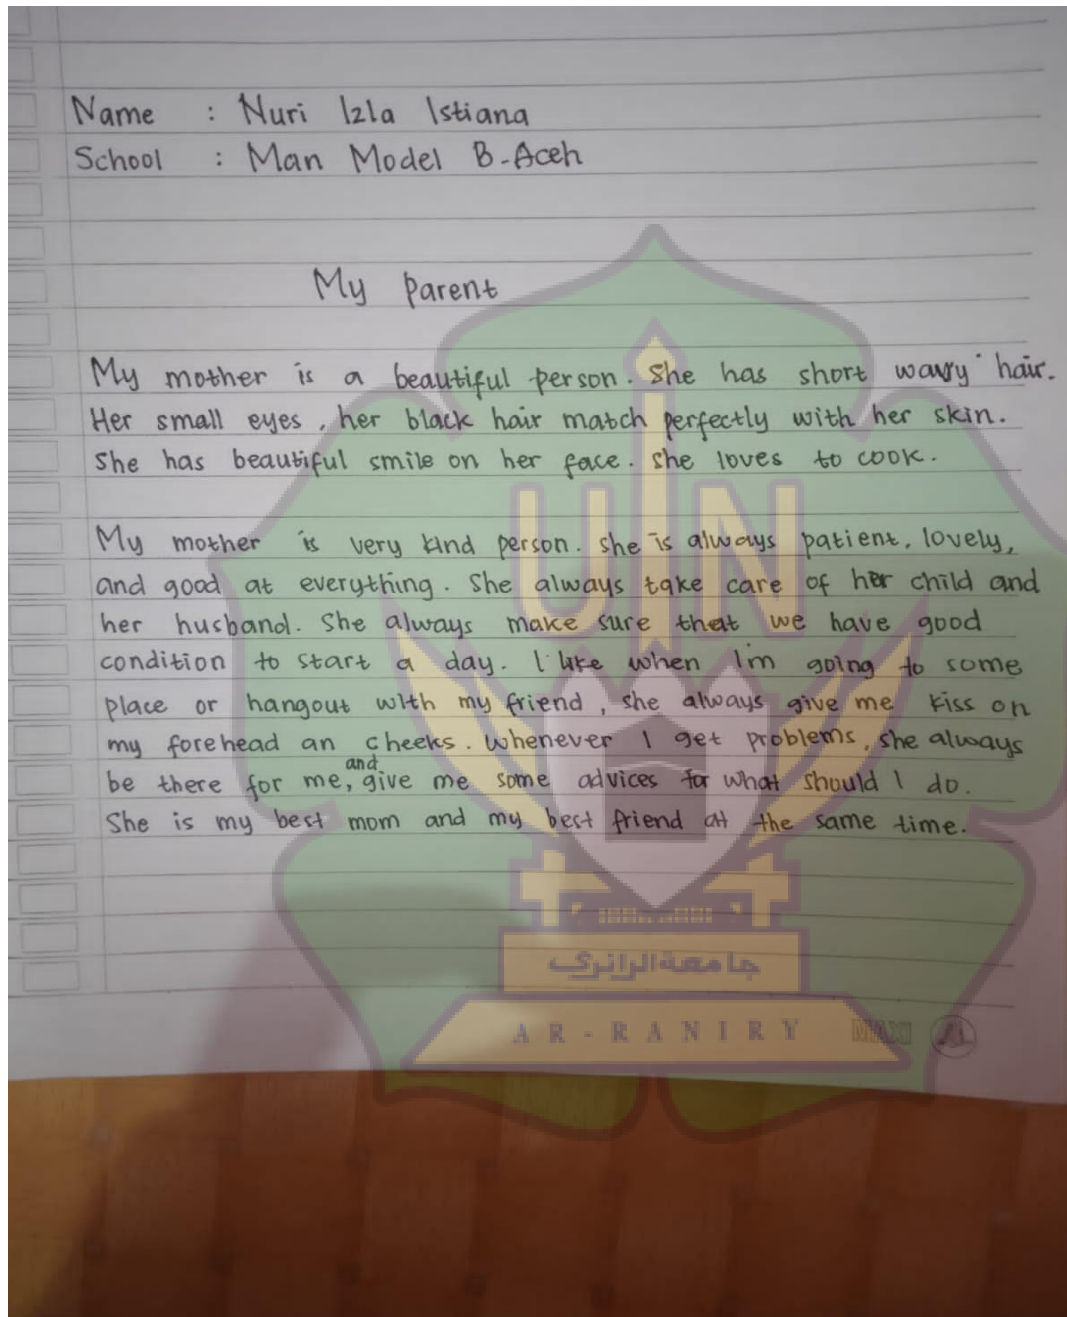 Name : Nuri Izla Istiana
School : Man Model B-Aceh
My parent
My mother is a beautiful person. She has short wavy hair.
Her small eyes, her black hair match perfectly with her skin.
She has beautiful smile on her face. She loves to cook.
My mother is very kind person. She is always patient, lovely,
and good at everything. She always take care of her child and
her husband. She always make sure that we have good
condition to start a day. I like when I'm going to some
place or hangout with my friend, she always give me kiss on
my forehead an cheeks. Whenever I get problems, she always
be there for me, and give me some advices for what should I do.
She is my best mom and my best friend at the same time.
UIN
جامعة الرانري
AR-RANIRY
MAXI